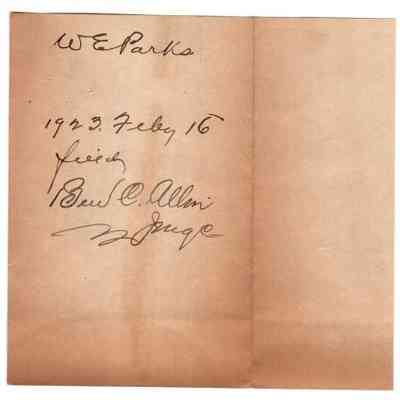 W E Parks
1923. Feby 16
filed
Ben C. Allin
Judge